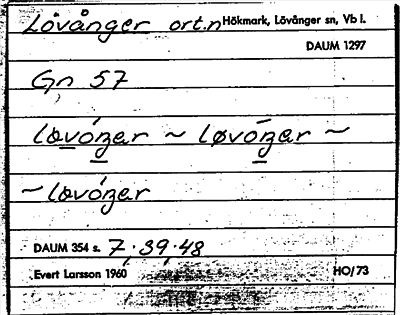 Lövånger ort.n Hökmark, Lövånger sn, Vb l.
DAUM 1297
Gn 57
løvóŋar ~ løvōŋar ~
~ løvóŋar
DAUM 354 s. 7, 39, 48
Evert Larsson 1960 HO/73